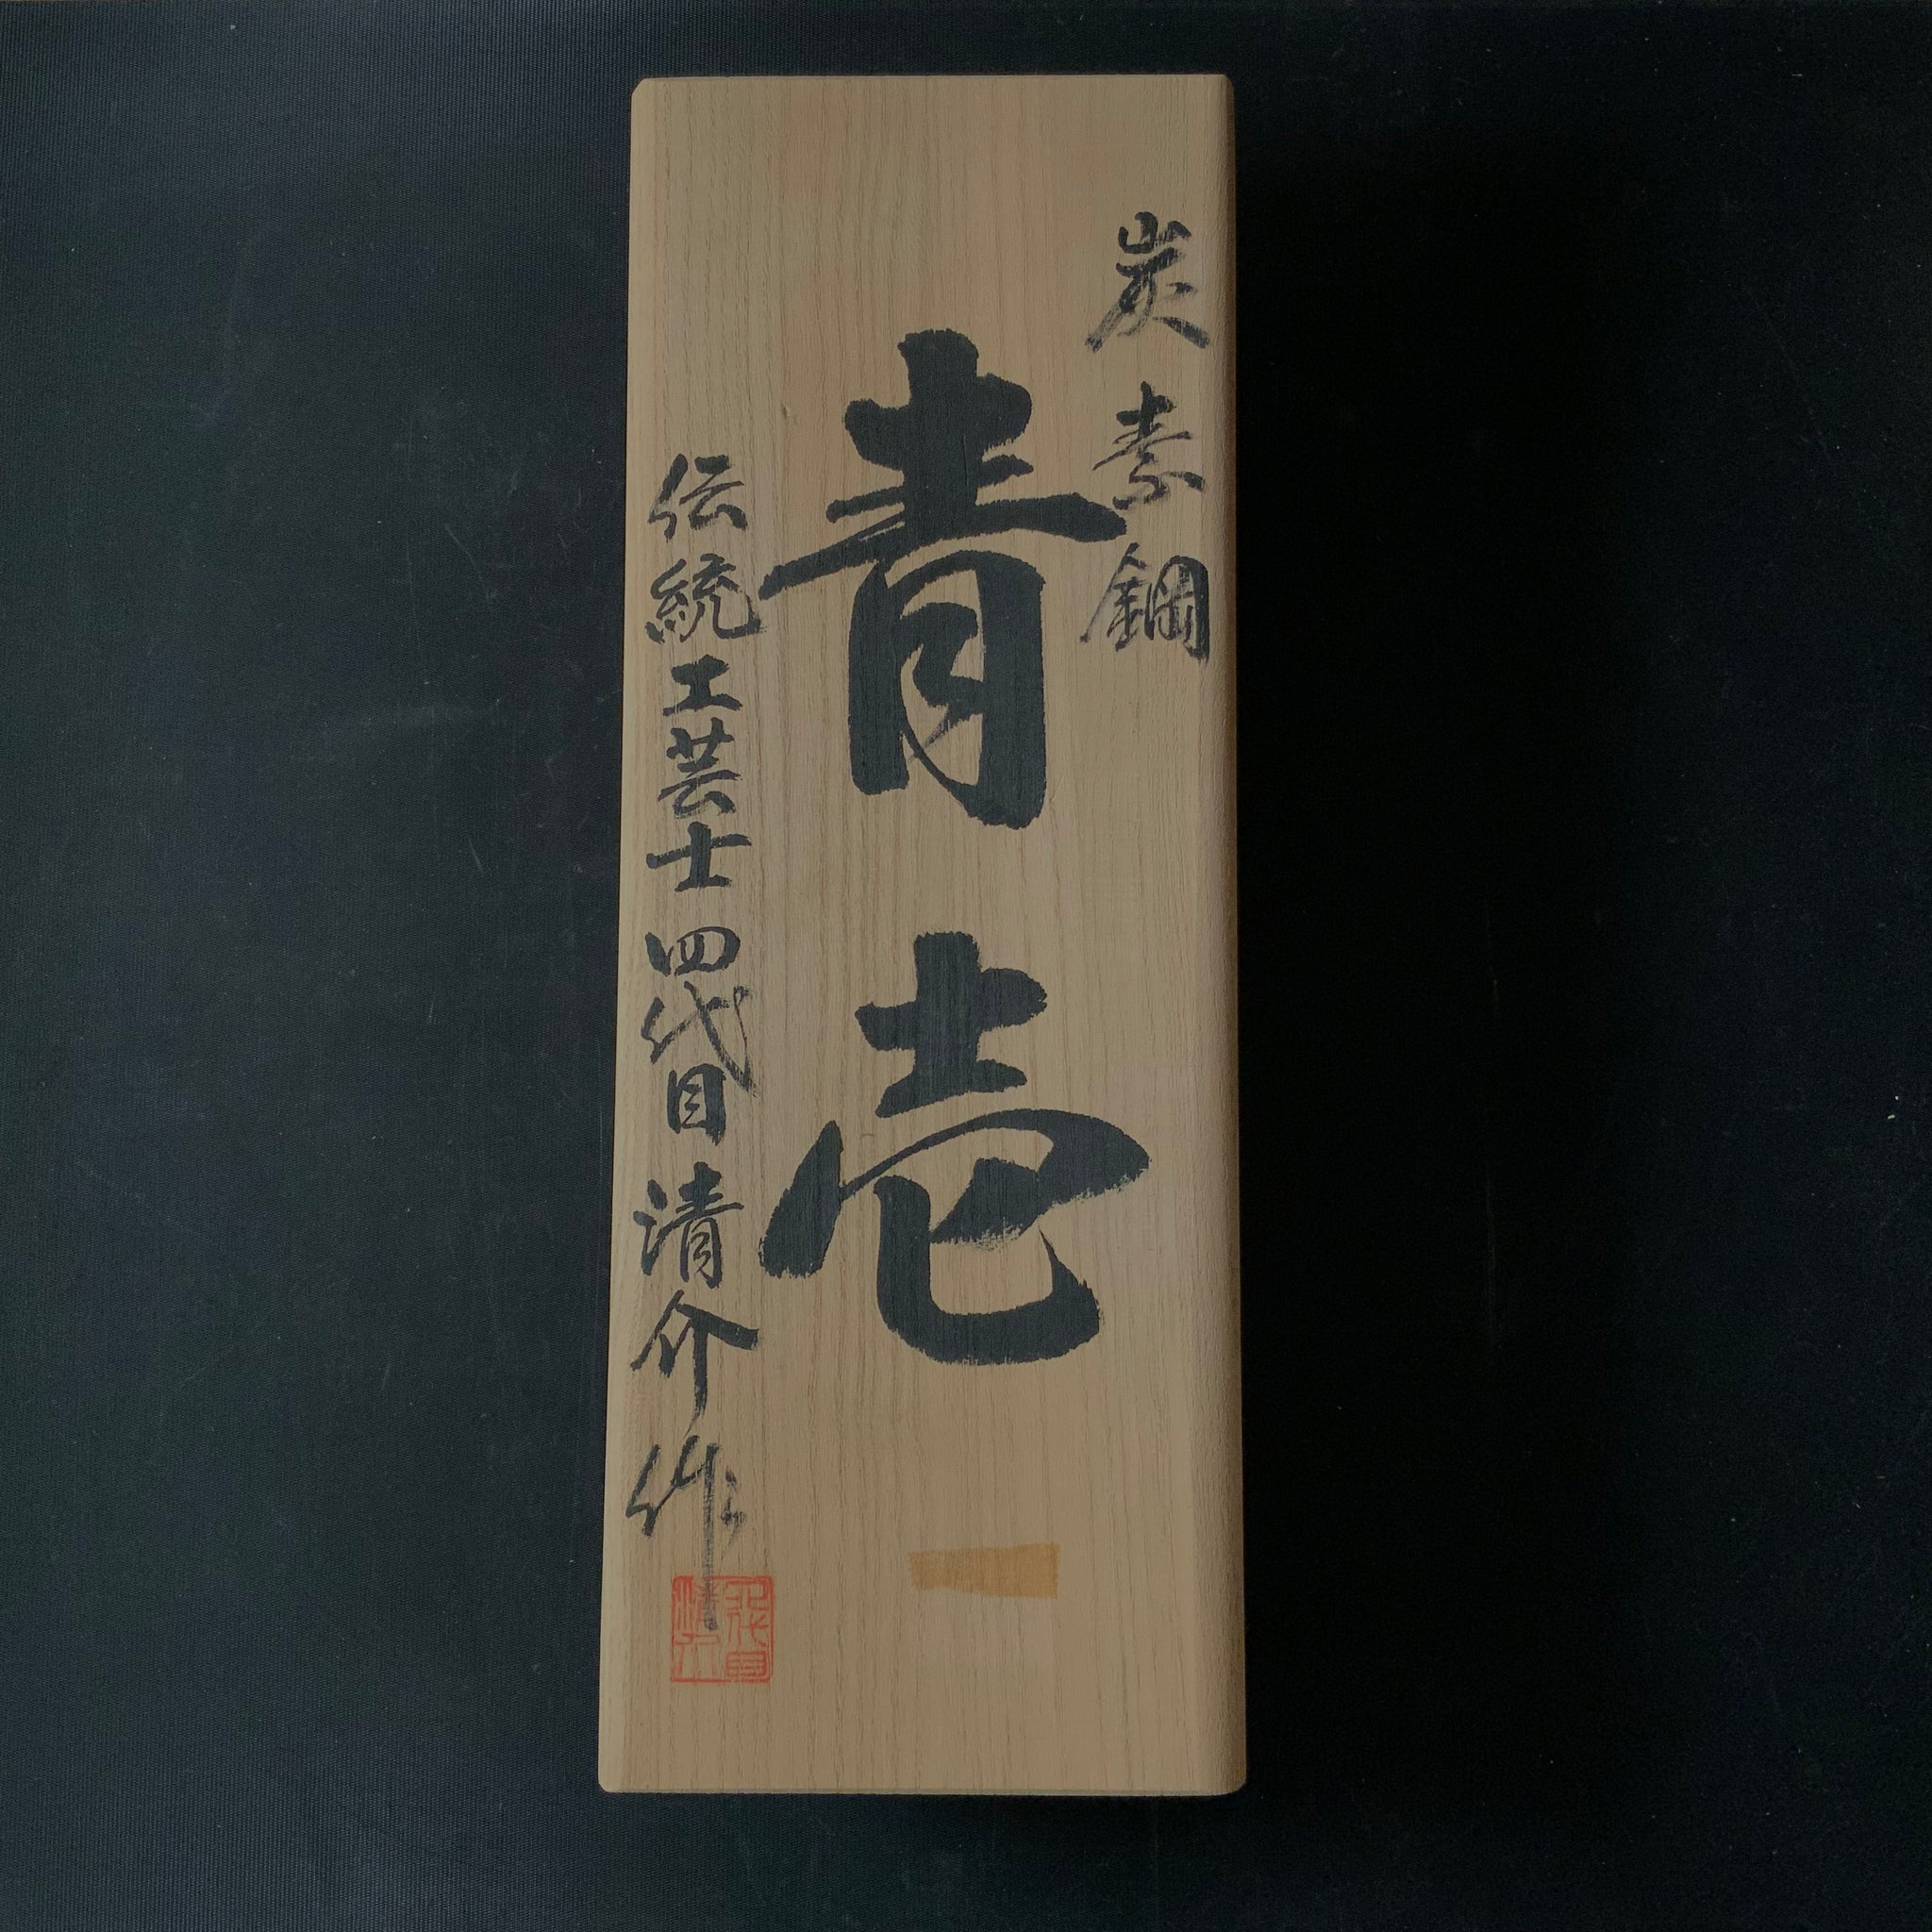 炭素鋼
青壱
伝統工芸士 四代目 清介 作